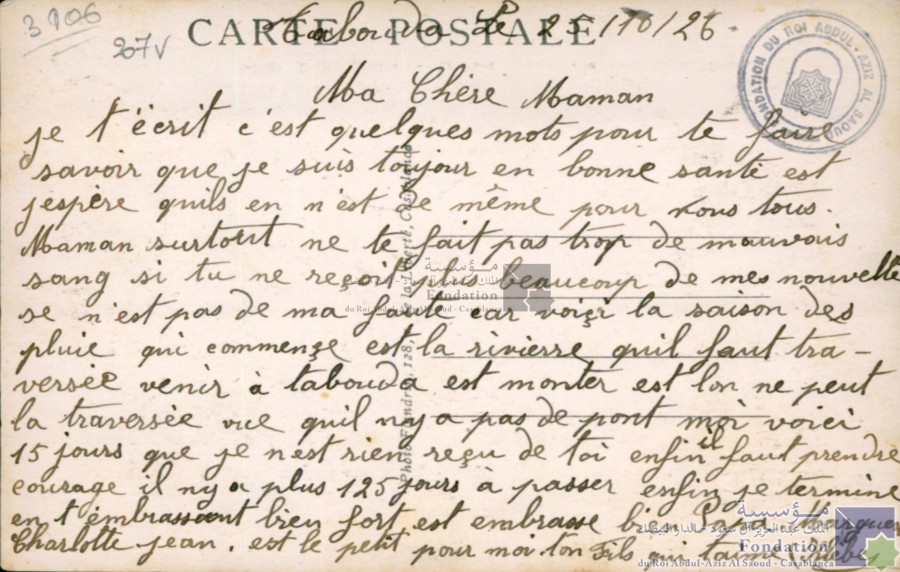 3906
207V
CARTE POSTALE
Tabouda Le 25/10/26
FONDATION DU ROI ABDUL-AZIZ AL SAOUD
Ma Chère Maman
je t'écrit c'est quelques mots pour te faire
savoir que je suis toujour en bonne santé est
jespère quils en n'est de même pour vous tous.
Maman surtout ne te fait pas trop de mauvais
sang si tu ne reçoit plus beaucoup de mes nouvelle
se n'est pas de ma faute car voiçi la saison des
pluie qui commençe est la rivierre quil faut tra-
versée venir à tabouda est monter est lon ne peut
la traversée vue quil ny a pas de pont moi voici
15 jours que je n'est rien reçu de toi enfin il faut prendre
courage il ny a plus 125 jours à passer enfin je termine
en t'embrassant bien fort est embrasse bien Papa
Charlotte jean. est le petit pour moi ton Fils qui t'aime
Photo Flandrin, 128, de la Liberté, Casablanca
مؤسسة
Fondation
du Roi Abdul-Aziz Al Saoud - Casablanca
مؤسسة
الملك عبد العزيز آل سعود - الدار البيضاء
Fondation
du Roi Abdul-Aziz Al Saoud - Casablanca